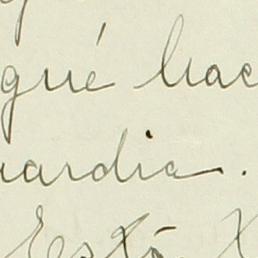 gué hac
uardia.
Está